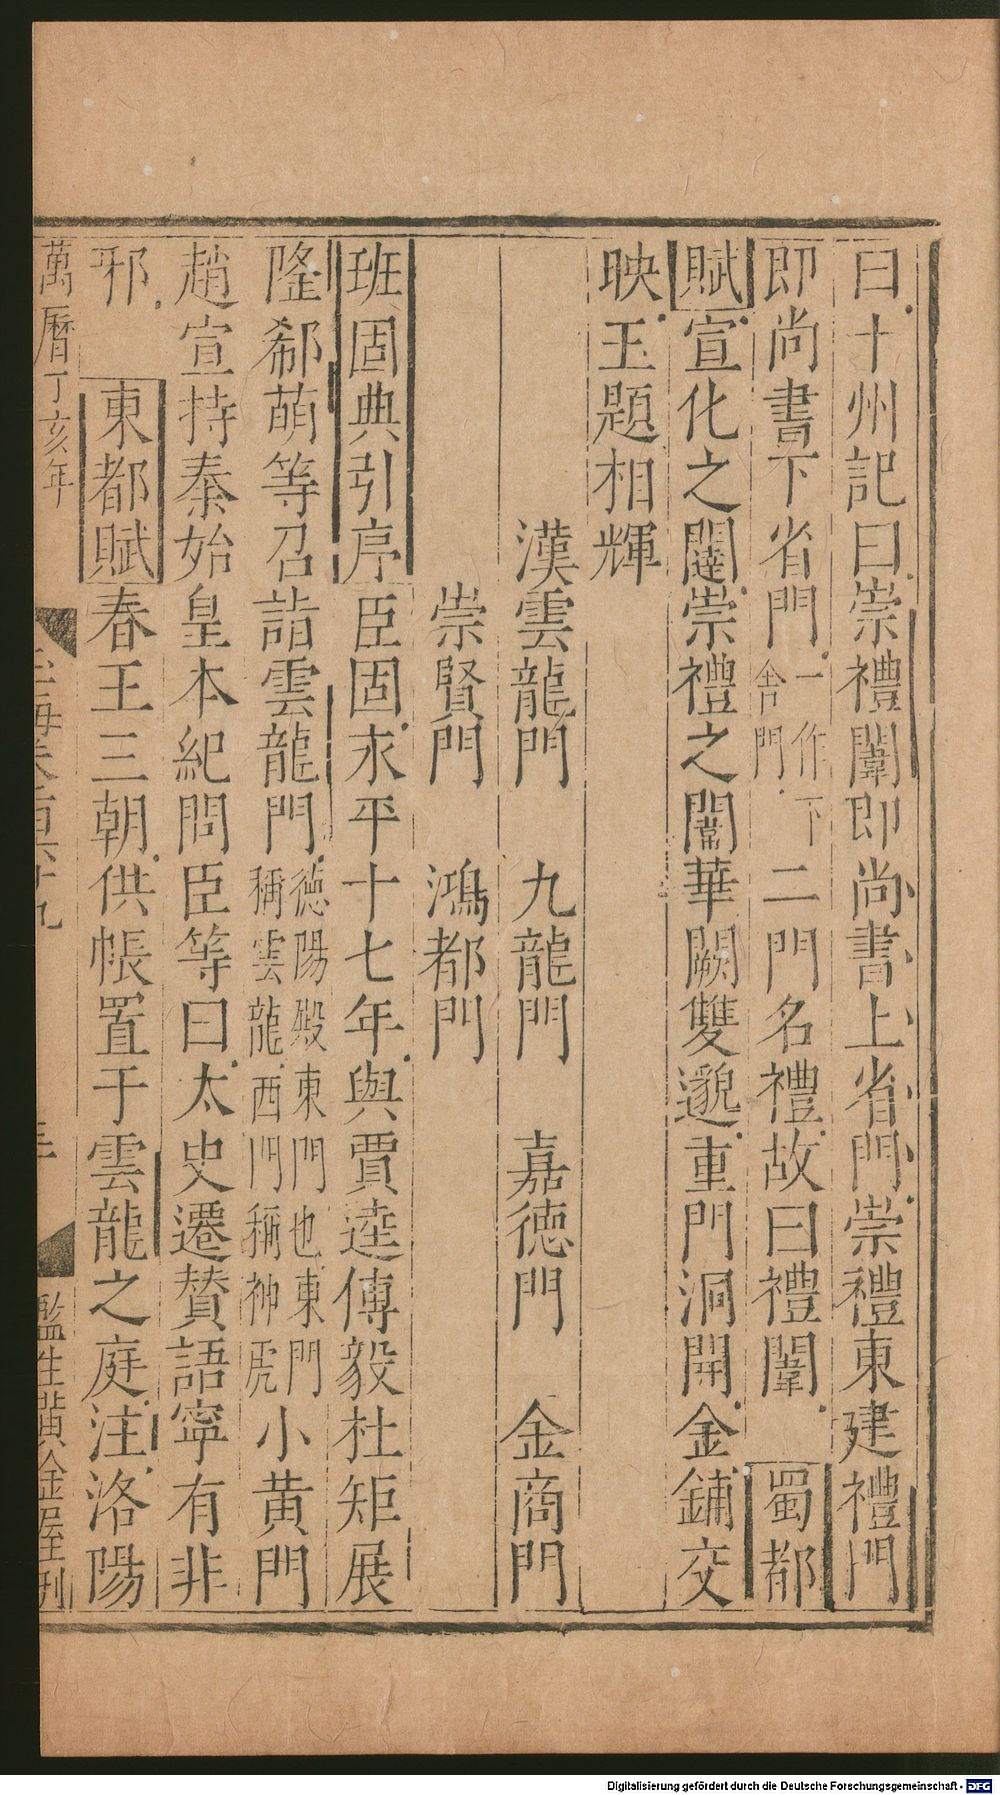 曰十州記曰崇禮闈即尚書上省門崇禮東建禮門
即尚書下省門一作下舍門二門名禮故曰禮闈 蜀都
賦宣化之闥崇禮之闈華闕雙邈重門洞開金鋪交
映玉題相輝
漢雲龍門 九龍門 嘉德門 金商門
崇賢門 鴻都門
班固典引序臣固永平十七年與賈逵傅毅杜矩展
隆郗萌等召詣雲龍門德陽殿東門也東門稱雲龍西門稱神虎小黃門
趙宣持秦始皇本紀問臣等曰太史遷贊語寧有非
邪 東都賦春王三朝供帳置于雲龍之庭注洛陽
萬曆丁亥年 玉海卷百六十九 三 監生黃金璽刊
Digitalisierung gefördert durch die Deutsche Forschungsgemeinschaft - DFG